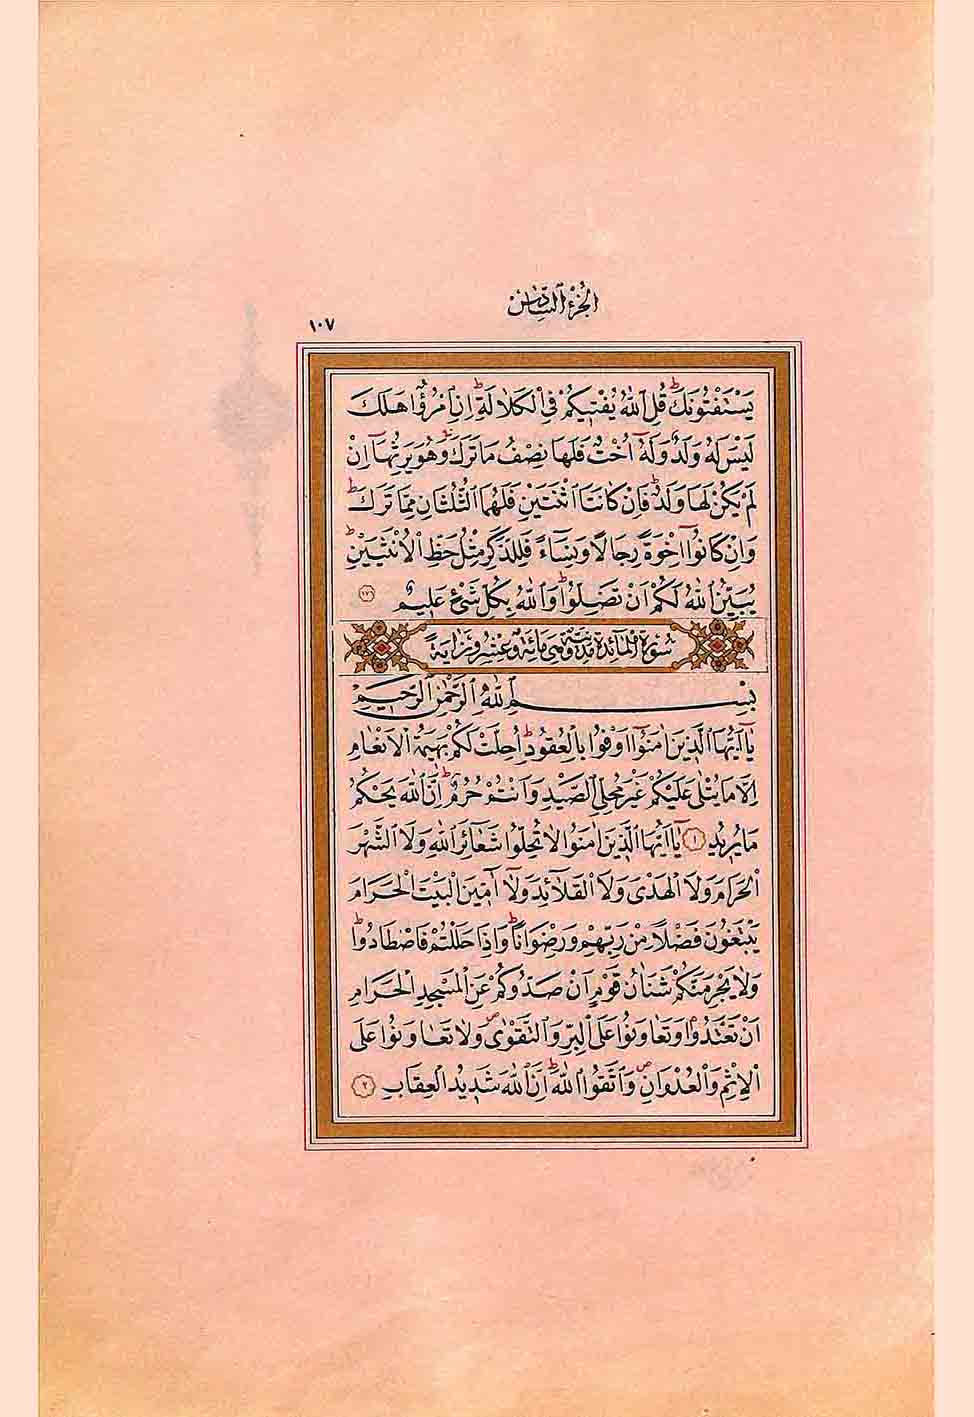 الجزء السادس
١٠٧
يَسْتَفْتُونَكَۜ قُلِ اللّٰهُ يُفْت۪يكُمْ فِي الْكَلَالَةِۜ اِنِ امْرُؤٌ۬ا هَلَكَ
لَيْسَ لَهُ وَلَدٌ وَلَهُٓ اُخْتٌ فَلَهَا نِصْفُ مَا تَرَكَۚ وَهُوَ يَرِثُهَٓا اِنْ
لَمْ يَكُنْ لَهَا وَلَدٌۜ فَاِنْ كَانَتَا اثْنَتَيْنِ فَلَهُمَا الثُّلُثَانِ مِمَّا تَرَكَۜ
وَاِنْ كَانُٓوا اِخْوَةً رِجَالًا وَنِسَٓاءً فَلِلذَّكَرِ مِثْلُ حَظِّ الْاُنْثَيَيْنِۜ
يُبَيِّنُ اللّٰهُ لَكُمْ اَنْ تَضِلُّواۜ وَاللّٰهُ بِكُلِّ شَيْءٍ عَل۪يمٌ ١٧٦
سُورَةُ الْمَائِدَةِ مَدَنِيَّةٌ وَهِيَ مِائَةٌ وَعِشْرُونَ اٰيَةً
بِسْمِ اللّٰهِ الرَّحْمٰنِ الرَّح۪يمِ
يَٓا اَيُّهَا الَّذ۪ينَ اٰمَنُٓوا اَوْفُوا بِالْعُقُودِۜ اُحِلَّتْ لَكُمْ بَه۪يمَةُ الْاَنْعَامِ
اِلَّا مَا يُتْلٰى عَلَيْكُمْ غَيْرَ مُحِلِّي الصَّيْدِ وَاَنْتُمْ حُرُمٌۜ اِنَّ اللّٰهَ يَحْكُمُ
مَا يُر۪يدُ ١ يَٓا اَيُّهَا الَّذ۪ينَ اٰمَنُوا لَا تُحِلُّوا شَعَٓائِرَ اللّٰهِ وَلَا الشَّهْرَ
الْحَرَامَ وَلَا الْهَدْيَ وَلَا الْقَلَٓائِدَ وَلَٓا اٰمّ۪ينَ الْبَيْتَ الْحَرَامَ
يَبْتَغُونَ فَضْلًا مِنْ رَبِّهِمْ وَرِضْوَانًاۜ وَاِذَا حَلَلْتُمْ فَاصْطَادُواۜ
وَلَا يَجْرِمَنَّكُمْ شَنَاٰنُ قَوْمٍ اَنْ صَدُّوكُمْ عَنِ الْمَسْجِدِ الْحَرَامِ
اَنْ تَعْتَدُواۢ وَتَعَاوَنُوا عَلَى الْبِرِّ وَالتَّقْوٰىۖ وَلَا تَعَاوَنُوا عَلَى
الْاِثْمِ وَالْعُدْوَانِۖ وَاتَّقُوا اللّٰهَۜ اِنَّ اللّٰهَ شَد۪يدُ الْعِقَابِ ٢